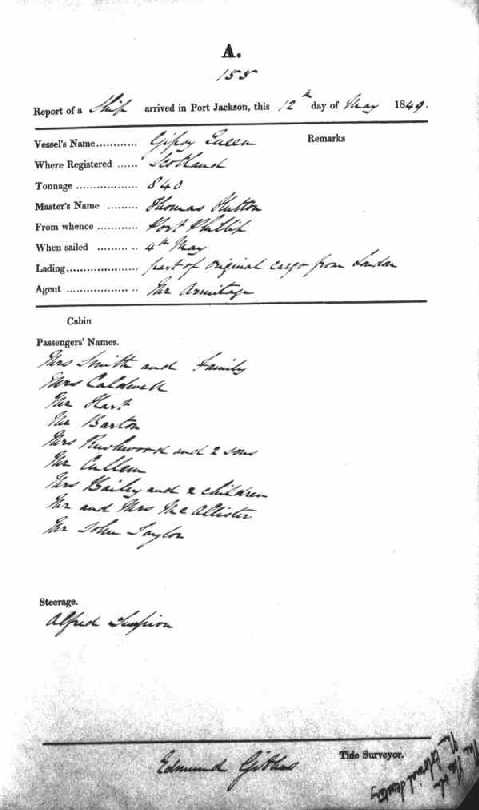 A.
155
Report of a Ship arrived in Port Jackson, this 12th day of May 1849.
Vessel's Name............ Gipsy Queen Remarks
Where Registered ...... Scotland
Tonnage .................. 840
Master's Name ......... Thomas Hutton
From whence ............ Port Phillip
When sailed .......... ... 4th May
Lading..................... part of original cargo from London
Agent ................... .. Mr Armitage
Cabin
Passengers' Names.
Mrs Smith and Family
Mrs Caldwell
Mr Hart
Mr Barton
Mrs Rushwood and 2 sons
Mr Cullen
Mrs Bailey and 2 children
Mr and Mrs McAllister
Mr John Taylor
Steerage.
Alfred Simpson
Edmund Gibbes Tide Surveyor.